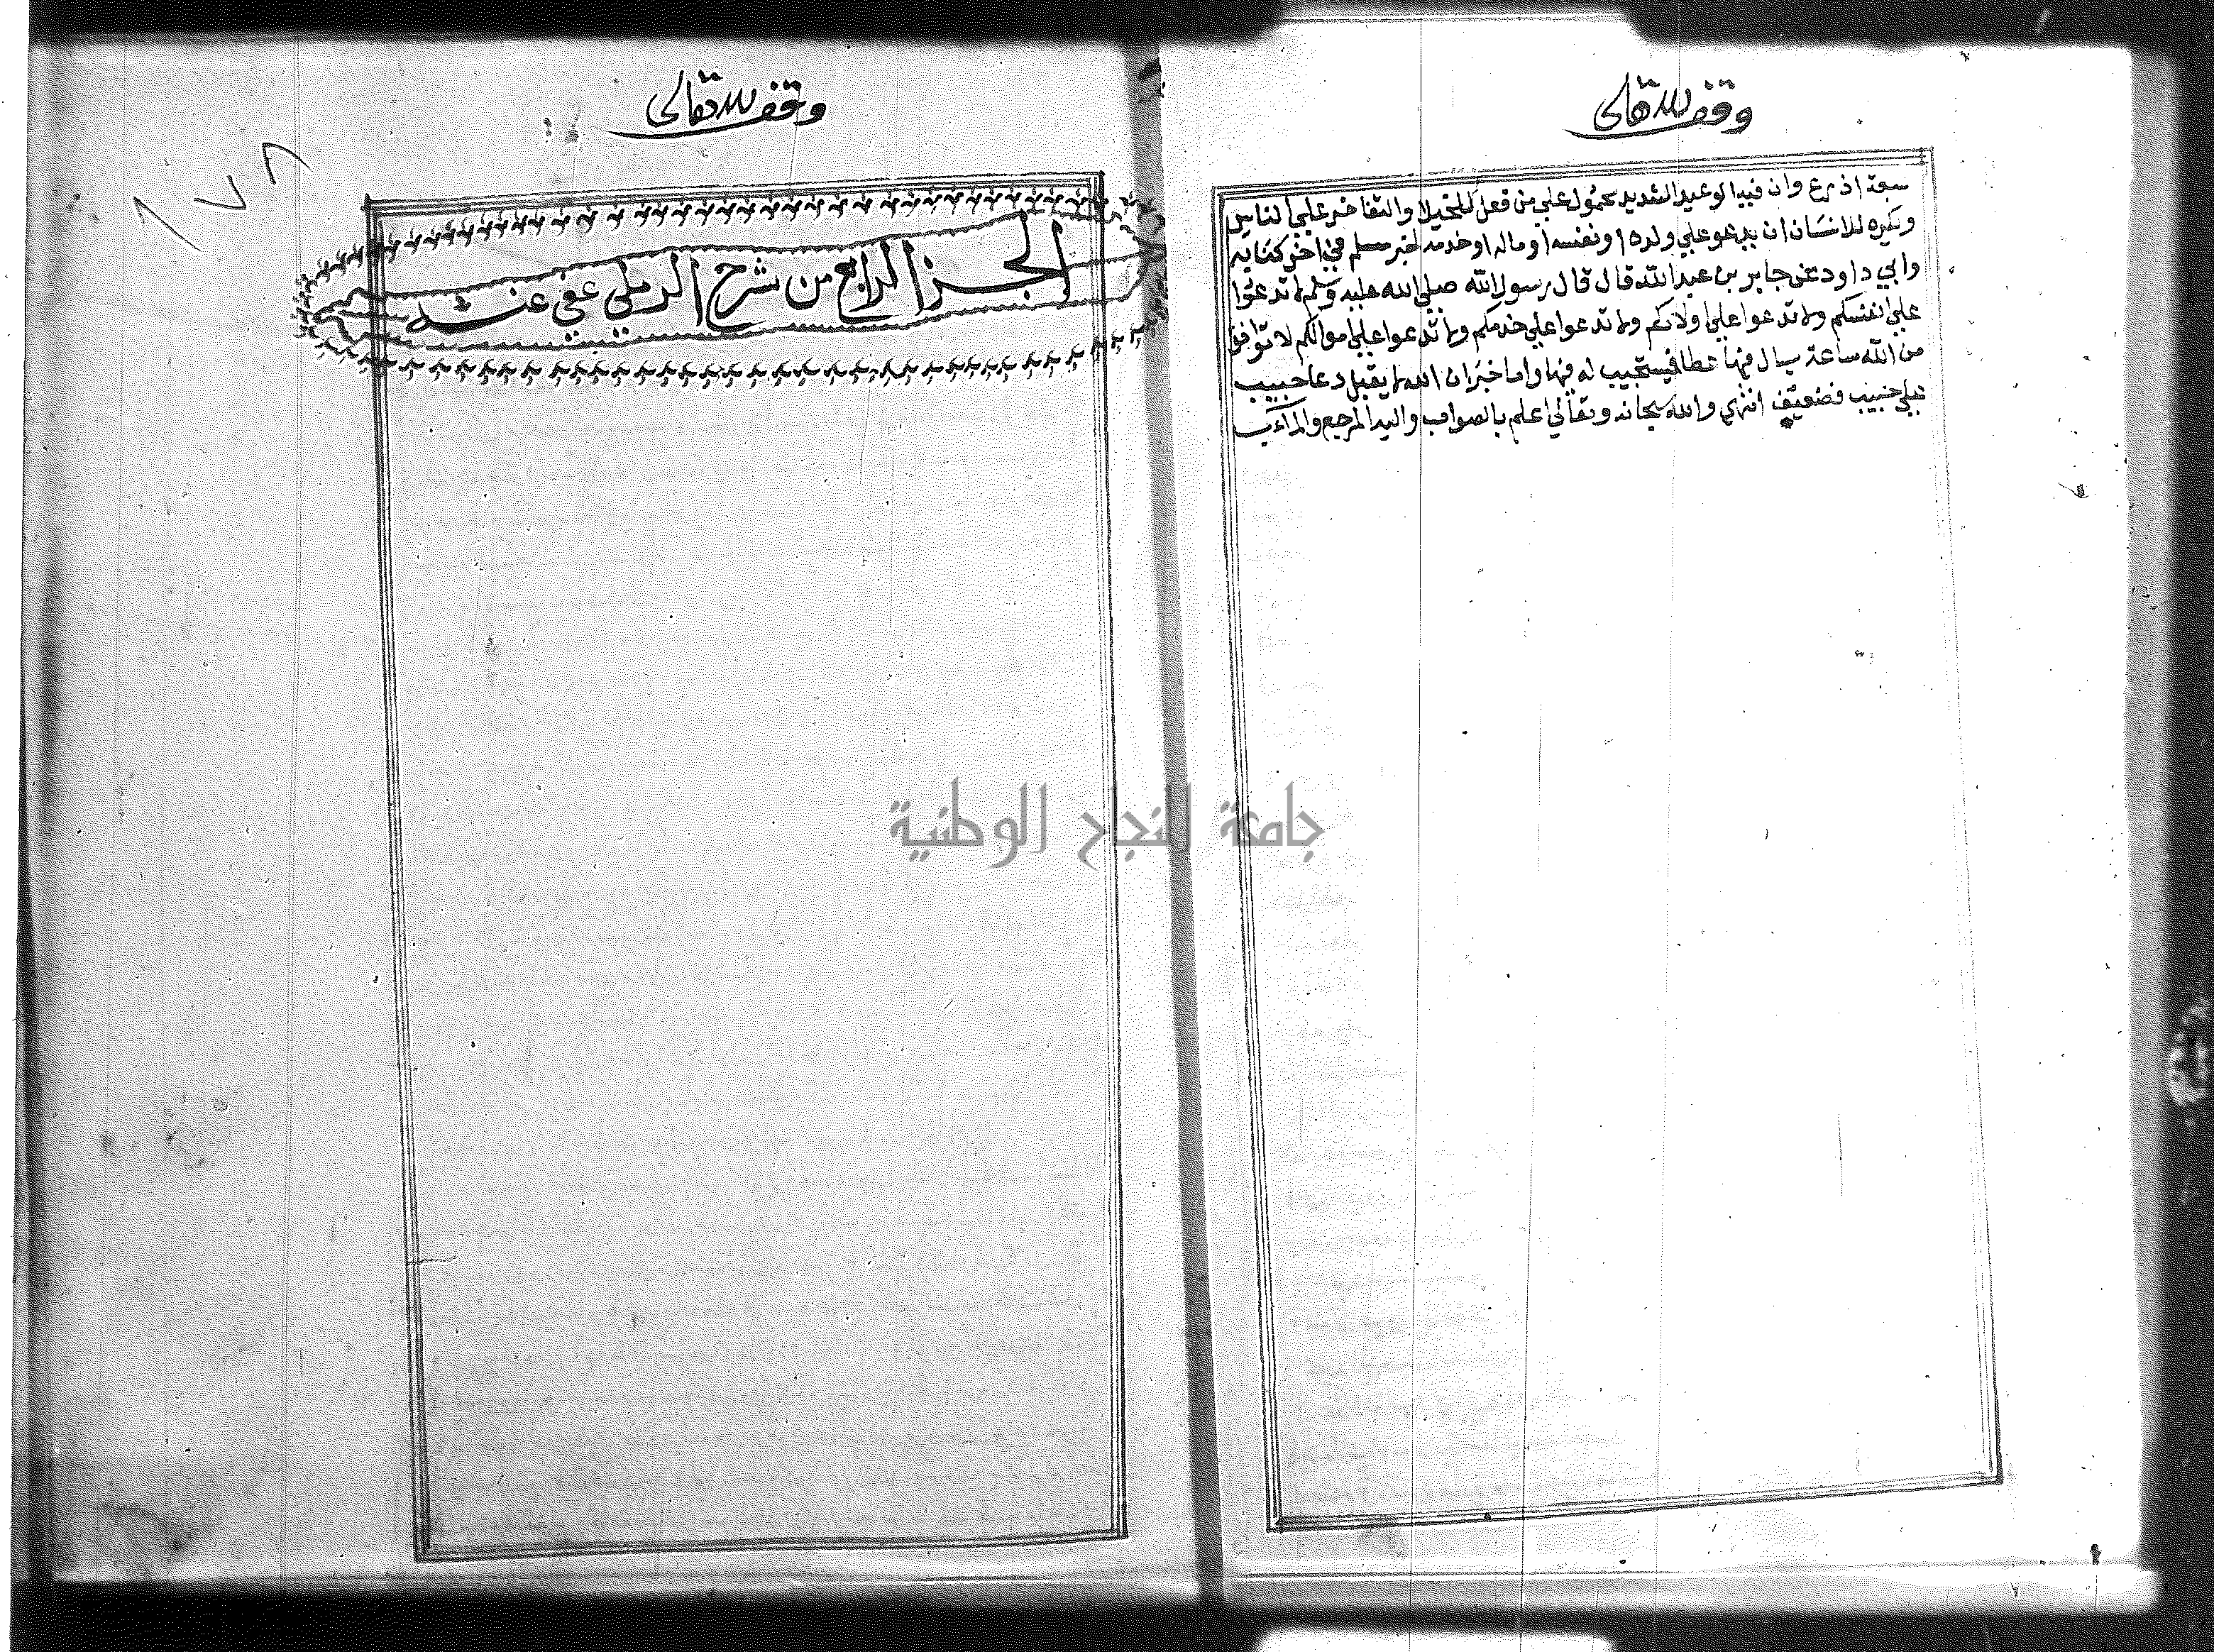 وقف لله تعالى
سبعة اذرع وان فيه الوعيد الشديد محمول علي من فعل للخيلا والتفاخر علي الناس
ويكره للانسان ان يدعو علي ولده او نفسه او ماله او خدمه لخبر مسلم في اخر كتابه
وابي داود عن جابر بن عبد الله قال قال رسول الله صلي الله عليه وسلم لا تدعوا
علي انفسكم ولا تدعوا علي اولادكم ولا تدعوا علي خدمكم ولا تدعوا علي اموالكم لا توافق
من الله ساعة يسال فيها عطا فيستجيب له فيها واما خبر ان الله لا يقبل دعا حبيب
علي حبيب فضعيف انتهي والله سبحانه وتعالي اعلم بالصواب واليه المرجع والمآب
وقف لله تعالى
١٧٨
الجزا الرابع من شرح الرملي عفي عنه
جامعة النجاح الوطنية